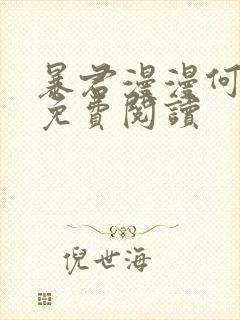 暴君漫漫何
免費閱讀
倪世海